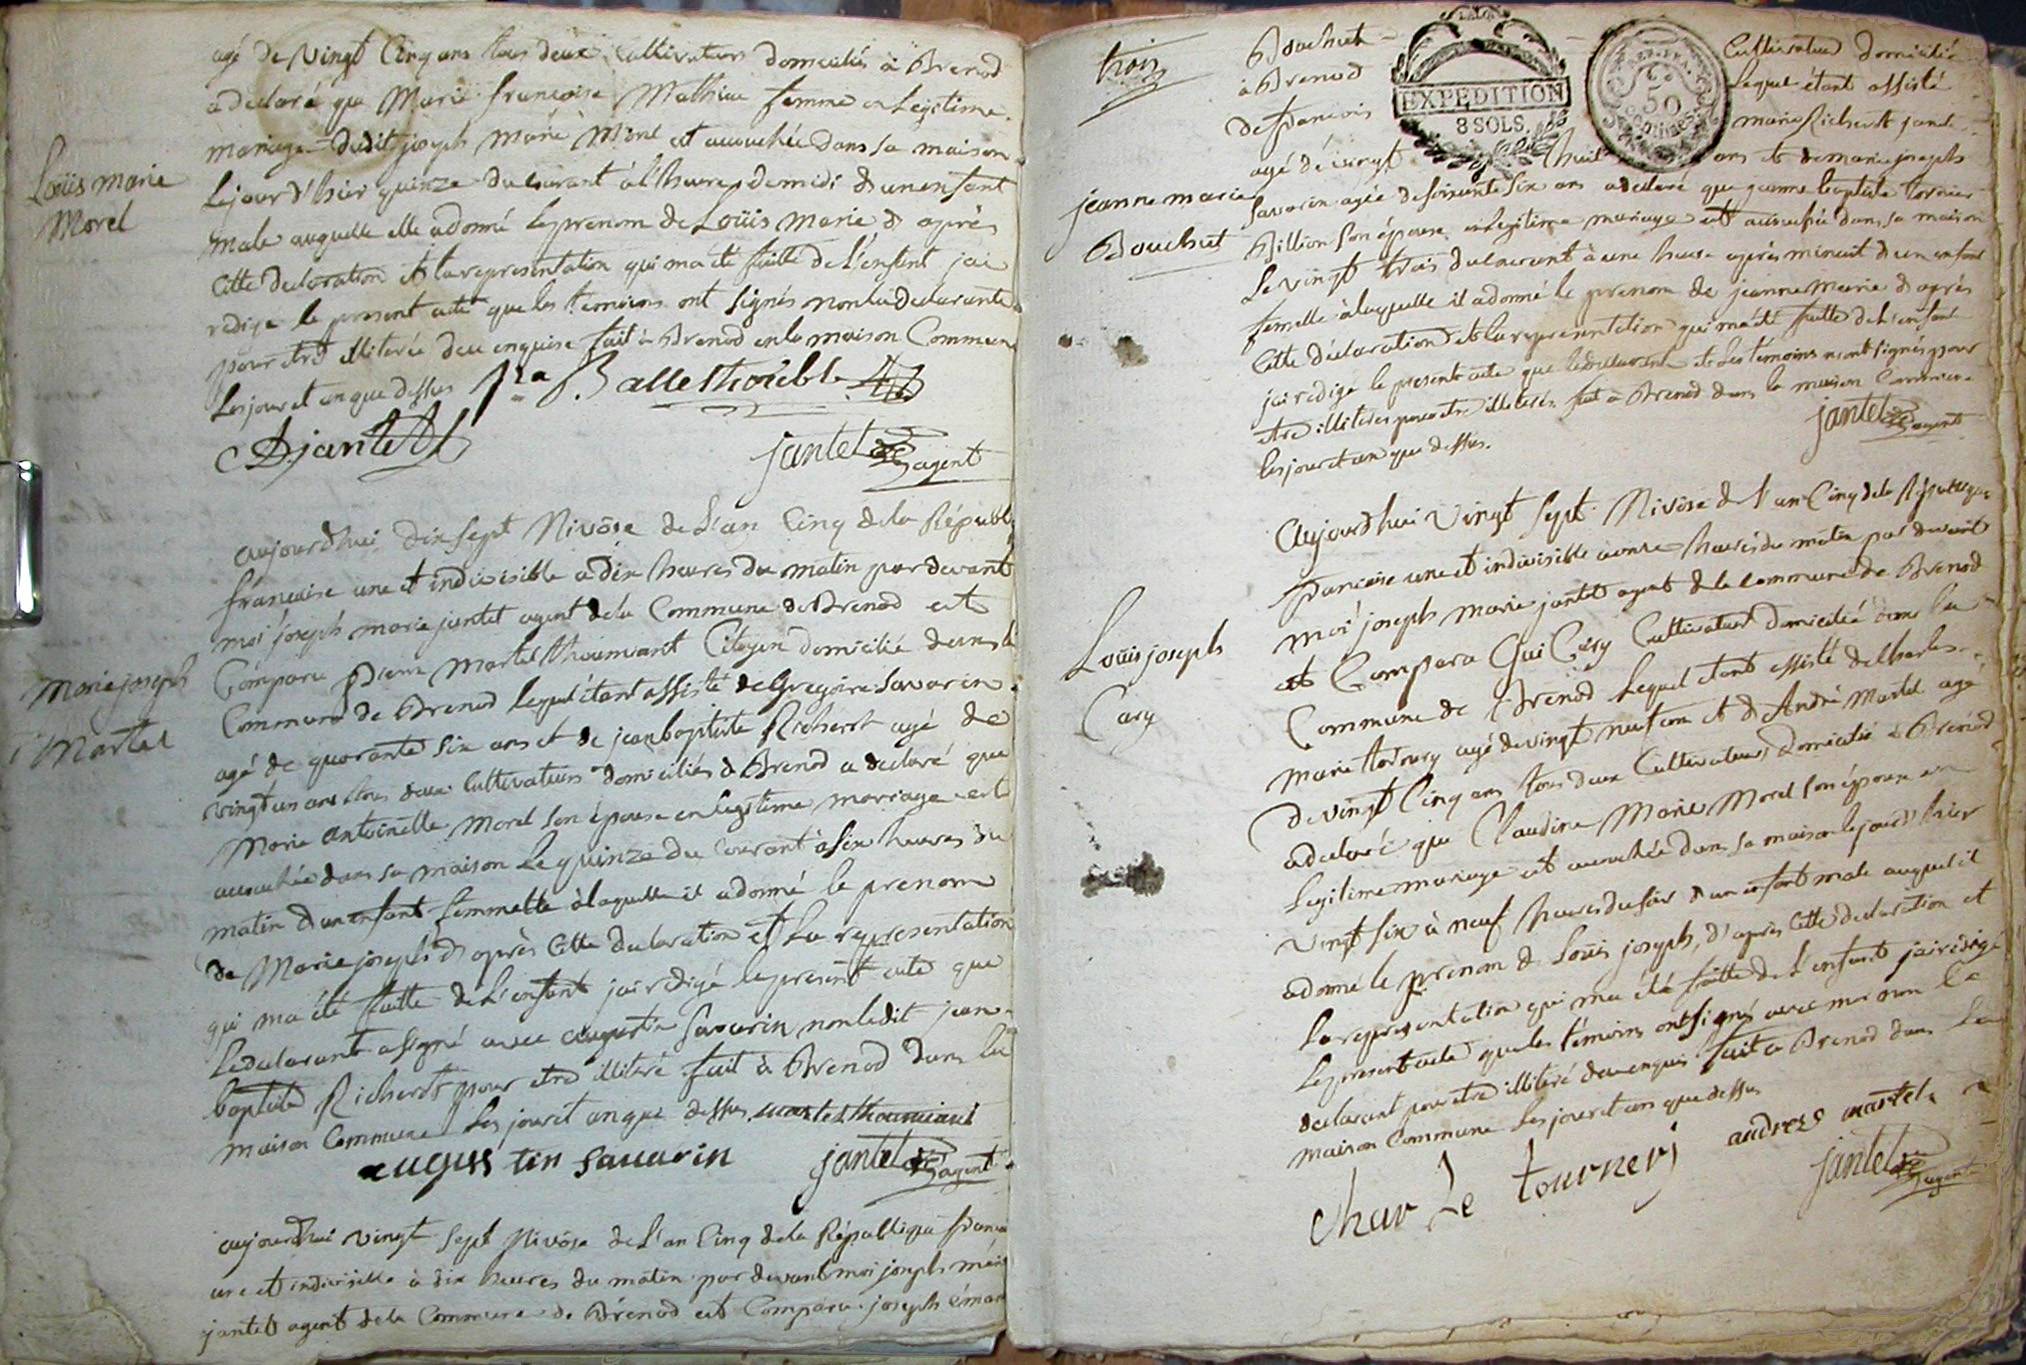 agé de vingt Cinq ans tous deux Cultivateurs domiciliés à Brenod
a declaré que Marie françoise Mathieu femme en Legitime
mariage dudit joseph marie Morel est accouchée dans sa maison
Lejour d'hier quinze du courant à l'heure de midi d'un enfant
Loüis marie
Morel
male auquelle elle a donné leprenom de Loüis Marie, d'après
Cette declaration et la representation qui ma été faitte de l'enfant jai
redige le present acte que les temoins ont signés non la declarante
pour etre illiterée de ce enquise fait à Brenod en la maison Commune
Les jour et an que dessus
D jantet
jantet agent
aujourdhui dix sept Nivôse de L'an Cinq de la Républ
francaise une et indivisible a dix heures du matin par devant
moi joseph marie jantet agent de la Commune de Brenod est
Comparu pierre Martel thoumiant Citoyen domicilié dans la
Marie joseph
Martel
Commune de Brenod lequel étant assisté de Gregoire Savarin
agé de quarante six ans et de jean baptiste Richerot agé de
vingt un ans tous deux Cultivateurs domiciliés à Brenod a declaré que
Marie antoinette Morel son épouse en legitime mariage est
accouchée dans sa maison Le quinze du Courant à six heures du
matin d'un enfant femmelle à laquelle il a donné le prenom
de Marie joseph d'après Cette declaration et La representation
qui ma été faitte de L'enfant jai redigé le present acte que
Ledeclarant a signé avec augustin Savarin non ledit jean
baptiste Richerot pour etre illiteré fait à Brenod dans la
maison Commune Les jour et an que dessus martel thoumiant
augustin savarin jantet agent
aujourdhui vingt sept Nivôse de L'an Cinq de la République franca
une et indivisible à dix heures du matin par devant moi joseph marie
jantet agent de la Commune de Brénod est Comparu joseph émar
trois
Bouchet
Cultivateur domicilié
à Brenod
Lequel étant assisté
EXPEDITION
8 SOLS.
50
Centimes
de francois
marie Richerot
agé de vingt huit ans et de marie joseph
jeanne marie
Bouchet
Savarin agée de soixante six ans a declaré que jeanne baptiste tornier
Billion son épouse en Legitime mariage est accouchée dans sa maison
Le vingt trois du courant à une heure après minuit d'un enfant
femelle à laquelle il a donné le prenom de jeanne marie d'après
Cette déclaration et la representation qui ma été faitte de L'enfant
jai redige le present acte que ledeclarant et les témoins nont signés pour
etre illiteres fait à Brenod dans la maison Commune
les jour et an que dessus.
jantet agent
Aujourdhui vingt sept Nivôse de L'an Cinq de la République
francaise une et indivisible a onze heures du matin par devant
moi joseph marie jantet agent de la commune de Brenod
Loüis joseph
Cary
est Comparu Gui Cary Cultivateur domicilié dans la
Commune de Brenod Lequel étant assisté de Charles
marie tornery agé de vingt neuf ans et d'André Martel agé
de vingt Cinq ans tous deux Cultivateurs domicilié à Brenod
a declaré que Claudine Marie Morel son épouse en
Legitime mariage est accouchée dans sa maison le jour d'hier
vingt six à neuf heures du soir d'un enfant male auquel il
a donné le prénom de Loüis joseph, d'après Cette declaration et
La representation qui ma été faitte de L'enfant jai redigé
Le present acte que les témoins ont signés avec moi non le
declarant pour etre illiteré de ce enquis fait à Brenod dans La
maison Commune Les jour et an que dessus
andres martel
char Le tournery
jantet agent